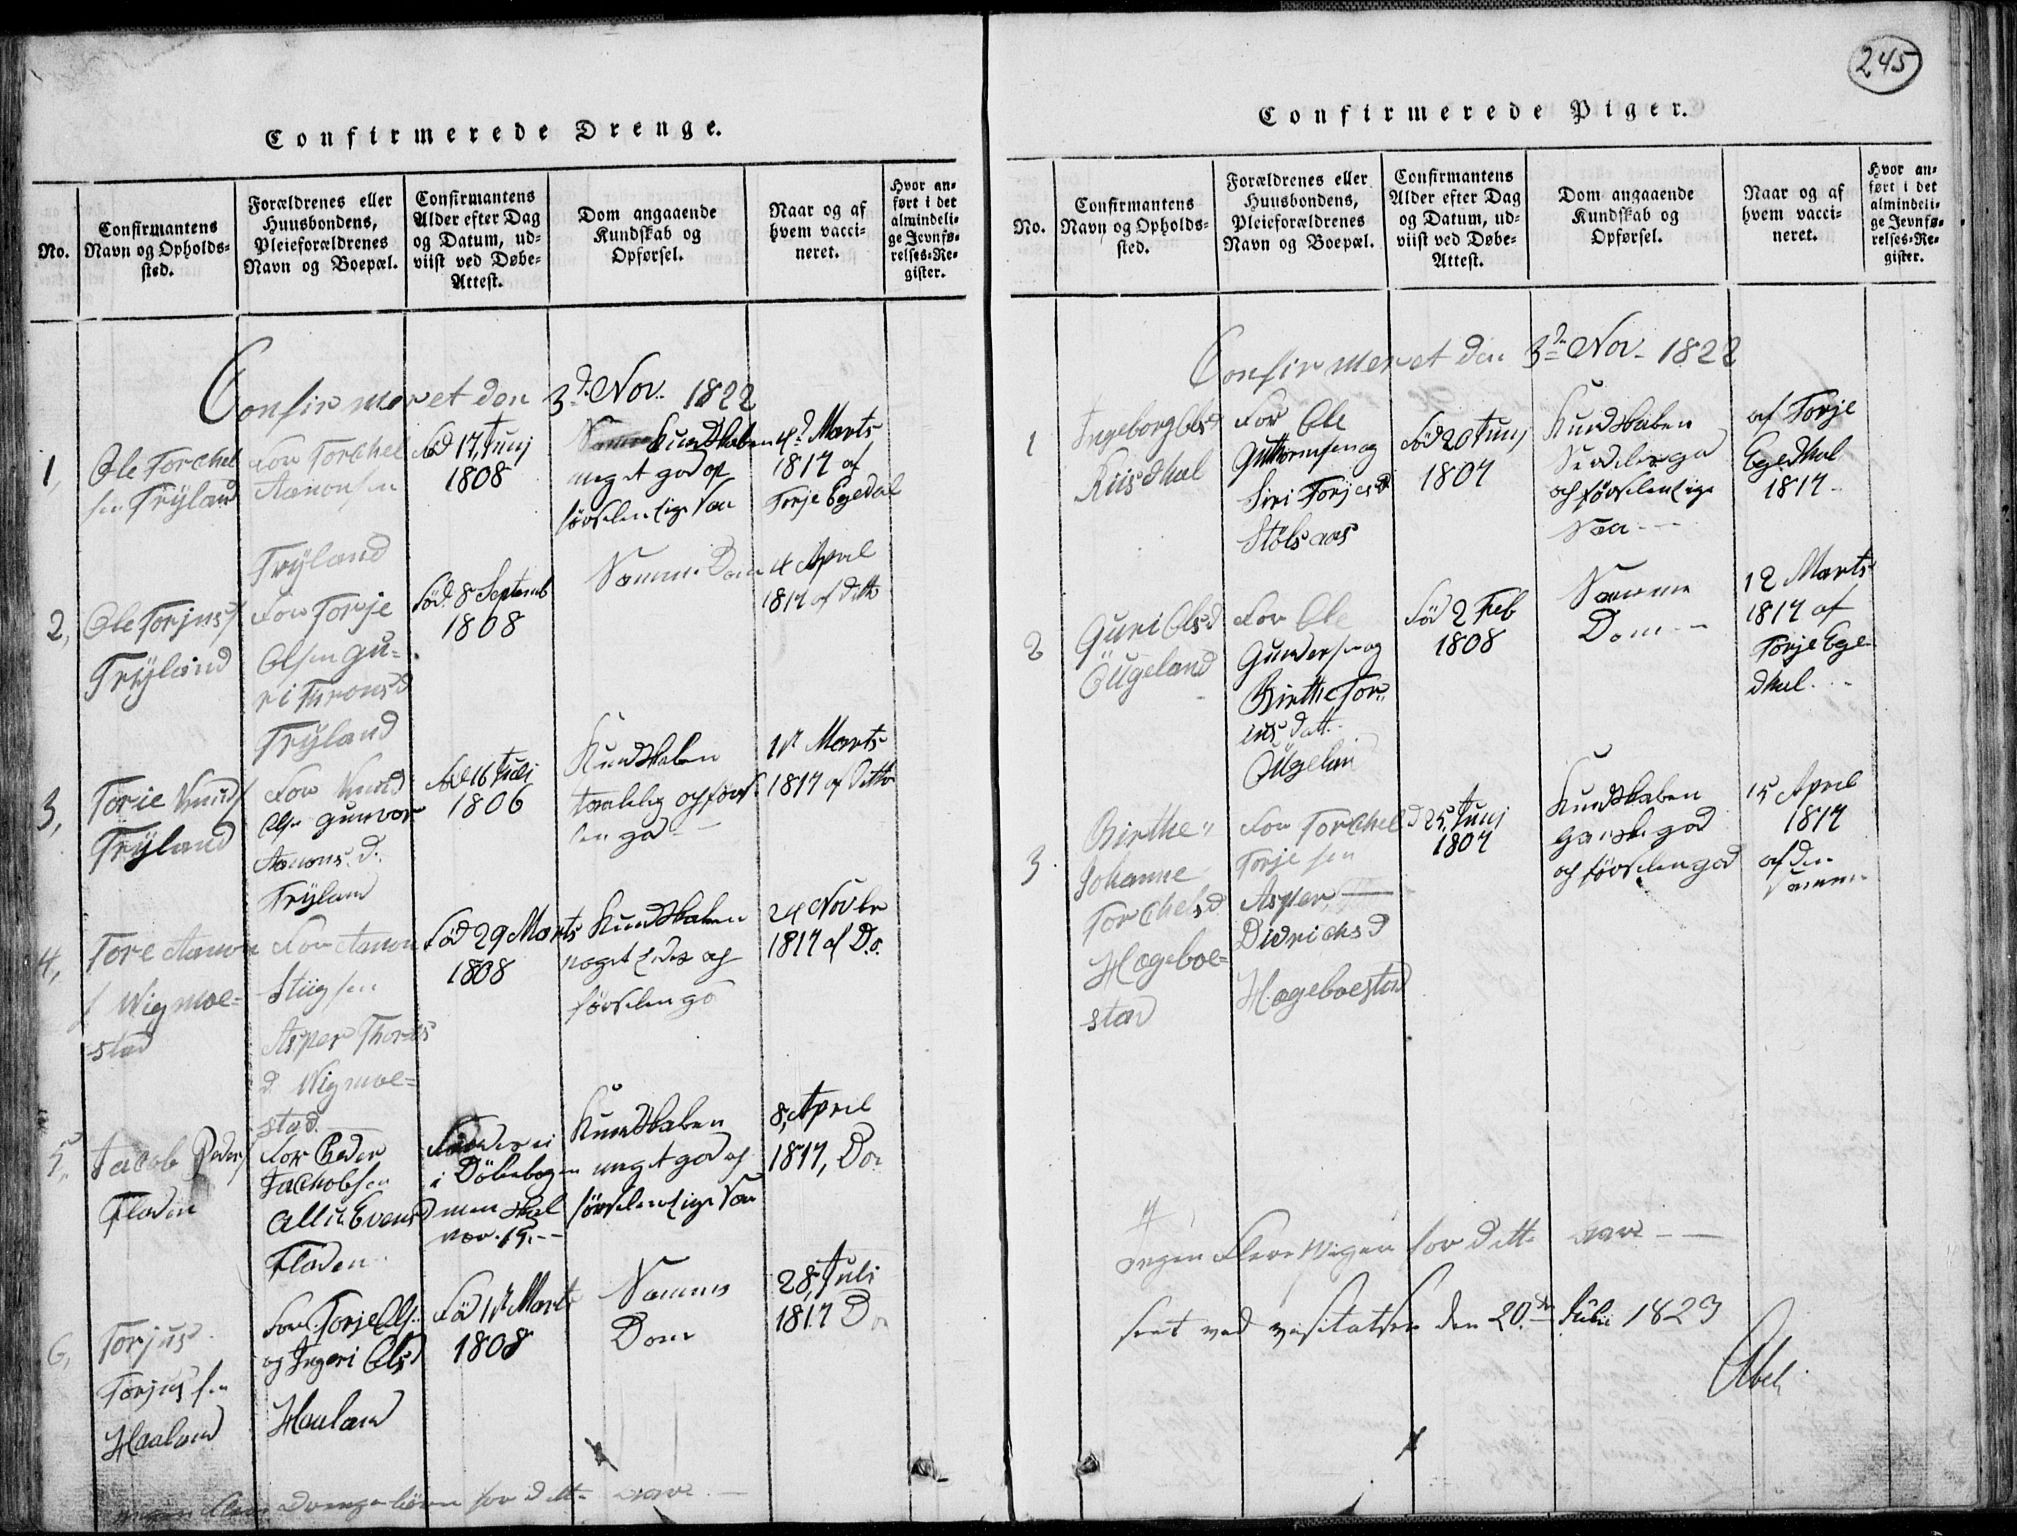 245
Confirmerede Drenge.
No.
Confirmantens
Navn og Opholds-
sted.
Forældrenes eller
Huusbondens,
Pleieforældrenes
Navn og Boepæl.
Confirmantens
Alder efter Dag
og Datum, ud-
viist ved Døbe-
Attest.
Dom angaaende
Kundskab og
Opførsel.
Naar og af
hvem vacci-
neret.
Hvor an-
ført i det
almindeli-
ge Jevnfø-
relses-Re-
gister.
Confirmeret den 3d Nov. 1822
1,
Ole Torchel
sen Trÿland
For Torchel
Aanonsen
Trÿland
Fød 17, Junj
1808
Kundskaben
meget god og
førselen lige saa
4d Marts
1817 af
Torje Egedal
2,
Ole Torjus
Trÿland
For Torje
Olsen Gu-
ri
Trÿland
Fød 8 Septemb
1808
Samme Dom
4 April
1817 af ditto
3,
Torie Knud
Trÿland
For Knud
Ols. Gunvor
Aanons. d.
Trÿland
Fød 16 Juli
1806
Kundskaben
taalelig og førse-
len god
Marts
1817 af ditto
4,
Tore Aanon
s Wigmoe-
stad
For Aanon
Stiigsen
Asper Thores
d. Wigmoe-
stad.
Fød 29 Marts
1808
Kundskaben
noget og
førselen go
24 Novbr
1817 af Do.
5,
Jacob Peders
Fladen
For Peder
Jachobsen
Evens d
Fladen
i Døbebogen
men skal
vær. 15.
Kundskaben
meget god og
førselen lige saa
8, April
1817, Do
6,
Torjus
Torjussen
Haaland
For. Torje Ols.
og Ingeri Olsd
Haaland
Fød Marts
1808
Samme
Dom
28, Juli
1817 Do
Drengebørn for dette aar
Confirmerede Piger.
No.
Confirmantens
Navn og Opholds-
sted.
Forældrenes eller
Huusbondens,
Pleieforældrenes
Navn og Boepæl.
Confirmantens
Alder efter Dag
og Datum, ud-
viist ved Døbe-
Attest.
Dom angaaende
Kundskab og
Opførsel.
Naar og af
hvem vacci-
neret.
Hvor an-
ført i det
almindeli-
ge Jevnfø-
relses-Re-
gister.
Confirmeret den 3d Nov. 1822
1
Ingeborg Olsd
Riisdhal
For Ole
Guttormsen og
Siri Torjesd
Stølsaas
Fød 20 Junj
1807
Kundskaben
og førselen lige
saa
af Torje
Egedhal
1817
2
Guri Olsd
Øugeland
For Ole
Gundersen og
Birthe Tor-
ius datt.
Fød 2 Feb
1808
Samme
Dom
12 Marts
1817 af
Torje Ege-
dhal.
3
Birthe
Johanne
Torchelsd
Hægeboe-
stad
For Torchel
Torjesen
Asper
Didrichsd
Hægeboestad
25, Junj
1807
Kundskaben
ganske god
og førselen god
15 April
1817
af den
samme
ingen flere Piger for dette aar
seet ved visitatsen den 20. Julii 1823
Abel